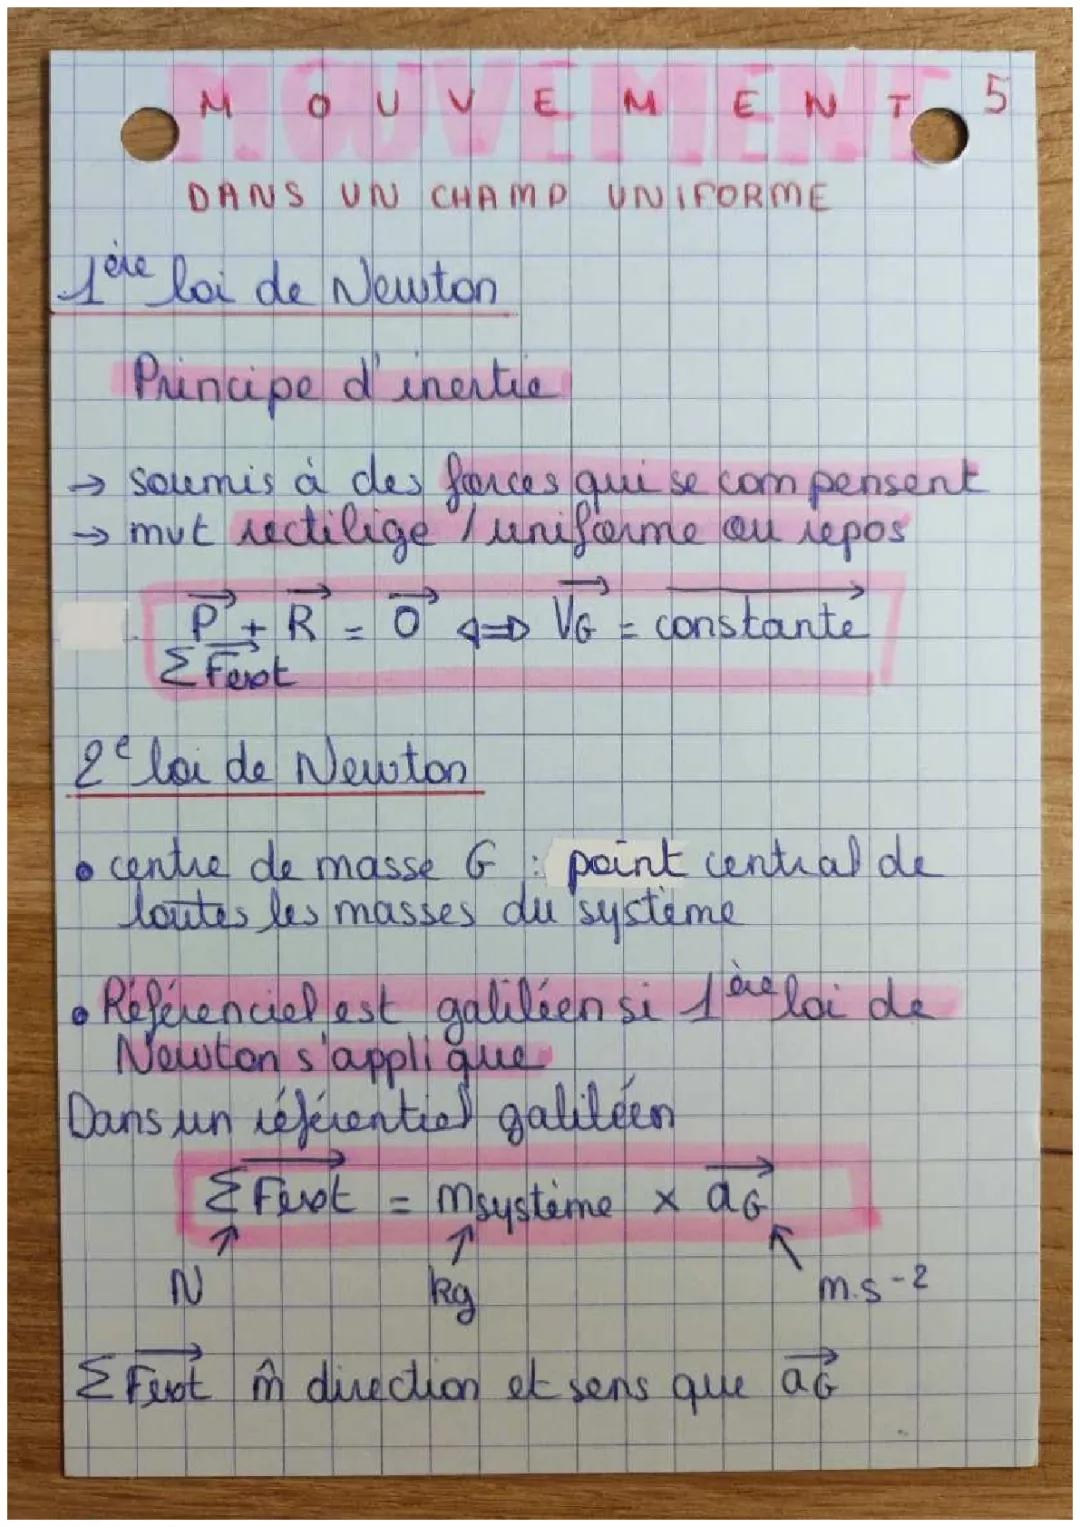 MOUVEMENT 5
DANS UN CHAMP UNIFORME
1ère loi de Newton
Principe d'inertie
→ soumis à des forces qui se compensent
→ mvt rectilige / uniforme ou repos
P⃗ + R⃗ = 0⃗ ⇔ V⃗G = constante
Σ F⃗ext
2e loi de Newton
• centre de masse G : point central de
toutes les masses du système
• Référenciel est galiléen si 1ère loi de
Newton s'applique
Dans un référentiel galiléen
Σ F⃗ext = msystème × a⃗G
↑ ↑ ↖
N kg m.s-2
Σ F⃗ext m̂ direction et sens que a⃗G